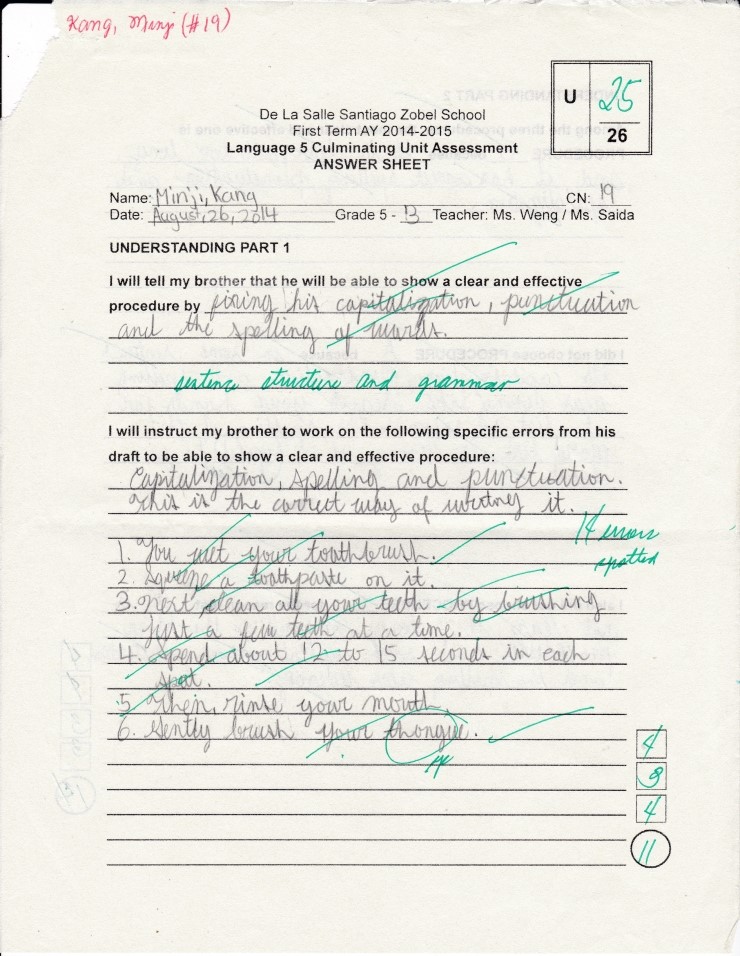 Kang, Minji (#19)
U 25
26
De La Salle Santiago Zobel School
First Term AY 2014-2015
Language 5 Culminating Unit Assessment
ANSWER SHEET
Name: Minji, Kang CN: 19
Date: August, 26, 2014 Grade 5 - B Teacher: Ms. Weng / Ms. Saida
UNDERSTANDING PART 1
I will tell my brother that he will be able to show a clear and effective
procedure by fixing his capitalization, punctuation
and the spelling of words.
sentence structure and grammar
I will instruct my brother to work on the following specific errors from his
draft to be able to show a clear and effective procedure:
Capitalization, spelling and punctuation.
This is the correct way of it.
14 errors
spotted
1. You wet your toothbrush.
2. Squeeze a toothpaste on it.
3. Next, clean all your teeth by brushing
just a few teeth at a time.
4. Spend about 12 to 15 seconds in each
spot.
5. Then, rinse your mouth.
6. Gently brush your thongue.
4
3
4
11